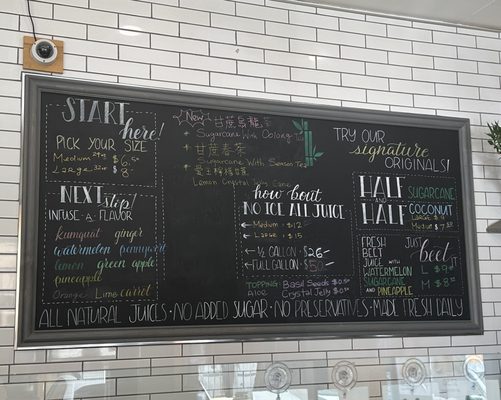 START here!
PICK YOUR SIZE
Medium 24oz $ 6.50
Large 32oz $ 8
NEXT step!
INFUSE-A-FLAVOR
kumquat ginger
watermelon pennywort
lemon green apple
pineapple
Orange Lime carrot
New
甘蔗烏龍茶
Sugarcane With Oolong Tea
甘蔗春茶
Sugarcane With Season Tea
Lemon Crystal With Cane
how bout
NO ICE ALL JUICE
Medium : $12
Large : $15
1/2 GALLON - $26
FULL GALLON - $50
TOPPING: Basil Seeds $0.50
Crystal Jelly $0.50
TRY OUR
signature
ORIGINALS!
HALF
and
HALF
SUGARCANE
COCONUT
Large $ 9
Medium $ 7.50
FRESH
BEET
JUICE WITH
WATERMELON
SUGARCANE
AND PINEAPPLE
JUST
beet IT
L $ 9
M $ 8
ALL NATURAL JUICES • NO ADDED SUGAR • NO PRESERVATIVES • MADE FRESH DAILY